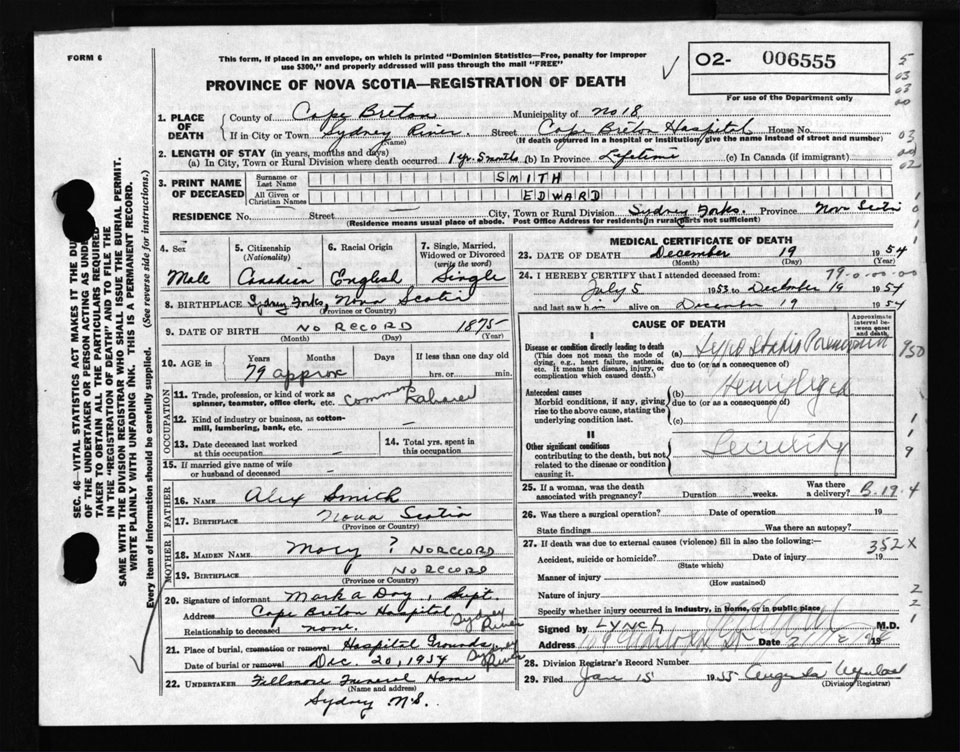 FORM 6
This form, if placed in an envelope, on which is printed "Dominion Statistics—Free, penalty for improper
use $300," and properly addressed will pass through the mail "FREE"
O2- 006555
For use of the Department only.
PROVINCE OF NOVA SCOTIA—REGISTRATION OF DEATH
SEC. 46—VITAL STATISTICS ACT MAKES IT THE DU
OF THE UNDERTAKER OR PERSON ACTING AS UNDE
TAKER TO OBTAIN ALL THE PARTICULARS REQUIRED
IN THE "REGISTRATION OF DEATH" AND TO FILE THE
SAME WITH THE DIVISION REGISTRAR WHO SHALL ISSUE THE BURIAL PERMIT.
WRITE PLAINLY WITH UNFADING INK. THIS IS A PERMANENT RECORD.
Every item of information should be carefully supplied. (See reverse side for instructions.)
1. PLACE OF DEATH
County of Cape Breton Municipality of No 18
If in City or Town Sydney River Street Cape Breton Hospital House No.
(Name) (If death occurred in a hospital or institution, give the name instead of street and number)
2. LENGTH OF STAY (in years, months and days)
(a) In City, Town or Rural Division where death occurred 1 yr. 5 months (b) In Province Lifetime (c) In Canada (if immigrant)
3. PRINT NAME OF DECEASED
Surname or Last Name SMITH
All Given or Christian Names EDWARD
RESIDENCE No. Street City, Town or Rural Division Sydney Forks. Province Nova Scotia
(Residence means usual place of abode. Post Office Address for residents in rural parts not sufficient)
4. Sex Male
5. Citizenship (Nationality) Canadian
6. Racial Origin English
7. Single, Married, Widowed or Divorced (write the word) Single
8. BIRTHPLACE Sydney Forks, Nova Scotia
(Province or Country)
9. DATE OF BIRTH NO RECORD 1875
(Month) (Day) (Year)
10. AGE in Years Months Days If less than one day old
79 approx hrs. or min.
OCCUPATION
11. Trade, profession or kind of work as spinner, teamster, office clerk, etc. Common Labourer
12. Kind of industry or business, as cotton-mill, lumbering, bank, etc. -
13. Date deceased last worked at this occupation -
14. Total yrs. spent in this occupation
15. If married give name of wife or husband of deceased -
FATHER
16. NAME Alex Smith
17. BIRTHPLACE Nova Scotia
(Province or Country)
MOTHER
18. MAIDEN NAME Mary ? NO RECORD
19. BIRTHPLACE NO RECORD
(Province or Country)
20. Signature of informant Mark A Day, Supt.
Address Cape Breton Hospital Sydney River
Relationship to deceased none.
21. Place of burial, cremation or removal Hospital Grounds Sydney River
Date of burial or removal Dec. 20, 1954
22. UNDERTAKER Fillmore Funeral Home
(Name and address)
Sydney N.S.
MEDICAL CERTIFICATE OF DEATH
23. DATE OF DEATH December 19 1954
(Month) (Day) (Year)
24. I HEREBY CERTIFY that I attended deceased from: 79-0-00-00
July 5 1953 to December 19 1954
and last saw him alive on December 19 1954
CAUSE OF DEATH
Approximate interval between onset and death.
I
Disease or condition directly leading to death
(This does not mean the mode of dying, e.g., heart failure, asthenia, etc. It means the disease, injury, or complication which caused death.)
(a)
due to (or as a consequence of)
Antecedent causes
Morbid conditions, if any, giving rise to the above cause, stating the underlying condition last.
(b) Hemiplegia
due to (or as a consequence of)
(c)
II
Other significant conditions
contributing to the death, but not related to the disease or condition causing it.
Senility
25. If a woman, was the death associated with pregnancy? Duration weeks. Was there a delivery? B.19.4
26. Was there a surgical operation? Date of operation 19
State findings Was there an autopsy?
27. If death was due to external causes (violence) fill in also the following:- 352X
Accident, suicide or homicide? Date of injury 19
(State which)
Manner of injury
(How sustained)
Nature of injury
Specify whether injury occurred in industry, in home, or in public place
Signed by LYNCH M.D.
Address
28. Division Registrar's Record Number
29. Filed Jan 15 1955
(Division Registrar)